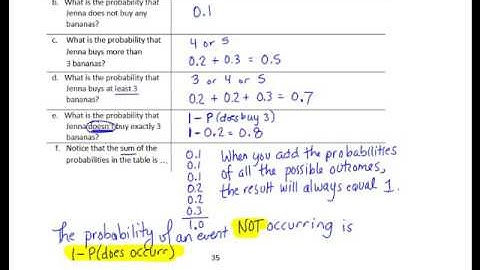 b. What is the probability that
Jenna does not buy any
bananas?
0.1
c. What is the probability that
Jenna buys more than
3 bananas?
4 or 5
0.2 + 0.3 = 0.5
d. What is the probability that
Jenna buys at least 3
bananas?
3 or 4 or 5
0.2 + 0.2 + 0.3 = 0.7
e. What is the probability that
Jenna doesn't buy exactly 3
bananas?
1 - P(does buy 3)
1 - 0.2 = 0.8
f. Notice that the sum of the
probabilities in the table is ...
0.1
0.1
0.1
0.2
0.2
0.3
1.0
When you add the probabilities
of all the possible outcomes,
the result will always equal 1.
The probability of an event NOT occurring is
1-P(does occurr)
35